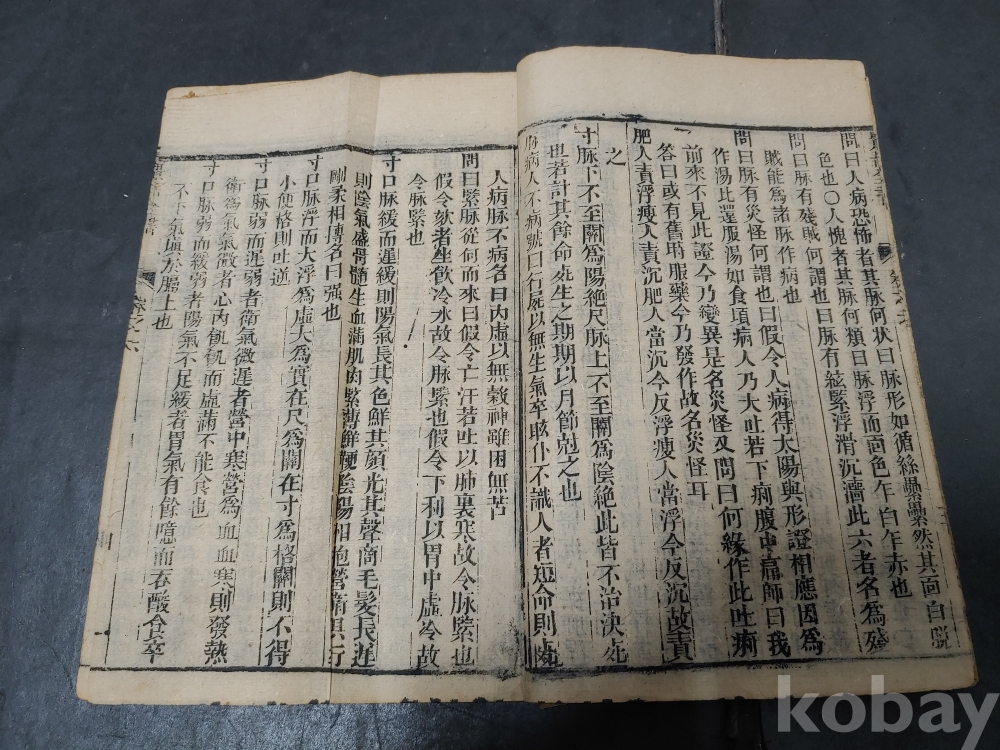 問曰人病恐怖者其脉何狀曰脉形如循絲纍纍然其面白脫
色也〇人愧者其脉何類曰脉浮而面色乍白乍赤也
問曰脉有殘賊何謂也曰脉有弦緊浮滑沉濇此六者名爲殘
賊能爲諸脉作病也
問曰脉有災怪何謂也曰假令人病得太陽與形證相應因爲
作湯比還服湯如食頃病人乃大吐若下痢腹中痛師曰我
前來不見此證今乃變異是名災怪又問曰何緣作此吐痢
答曰或有舊時服藥今乃發作故名災怪耳
肥人責浮瘦人責沉肥人當沉今反浮瘦人當浮今反沉故責
之
寸脉下不至關爲陽絶尺脉上不至關爲陰絶此皆不治決死
也若計其餘命死生之期期以月節尅之也
脉病人不病號曰行屍以無生氣卒眩仆不識人者短命則死
人病脉不病名曰內虛以無穀神雖困無苦
問曰緊脉從何而來曰假令亡汗若吐以肺裏寒故令脉緊也
假令欬者坐飮冷水故令脉緊也假令下利以胃中虛冷故
令脉緊也
寸口脉緩而遲緩則陽氣長其色鮮其顏光其聲商毛髮長遲
則陰氣盛骨髓生血滿肌肉緊薄鮮鞕陰陽相抱營衛俱行
剛柔相搏名曰强也
寸口脉浮而大浮爲虛大爲實在尺爲關在寸爲格關則不得
小便格則吐逆
寸口脉弱而遲弱者衛氣微遲者營中寒營爲血血寒則發熱
衛爲氣氣微者心內飢飢而虛滿不能食也
寸口脉弱而緩弱者陽氣不足緩者胃氣有餘噫而吞酸食卒
不下氣塡於膈上也
kobay